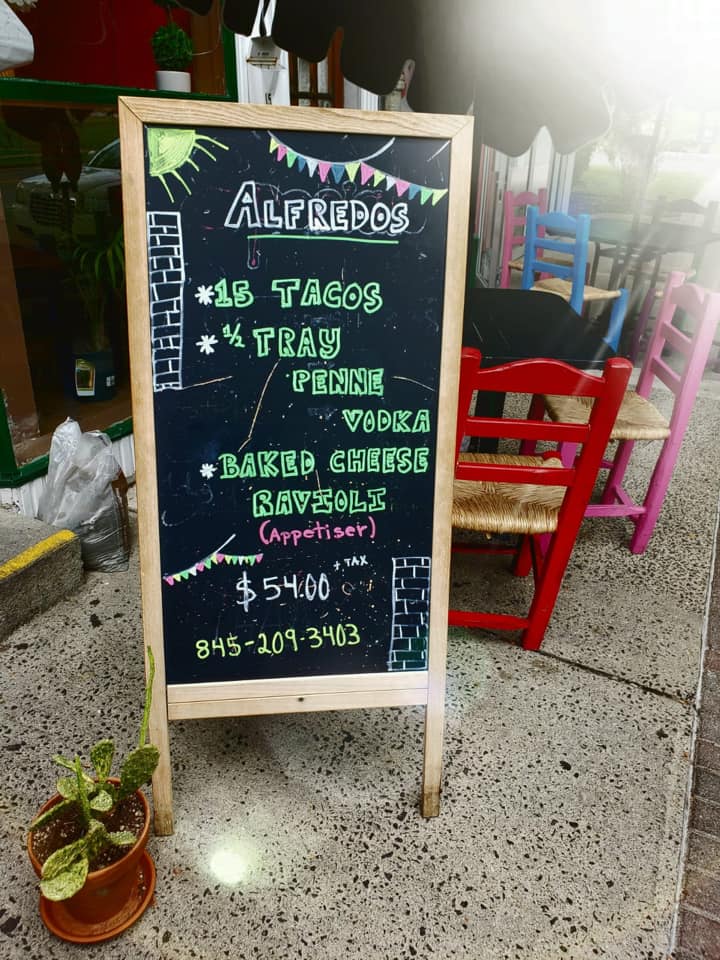 ALFREDOS
*15 TACOS
*½ TRAY
PENNE
VODKA
*BAKED CHEESE
RAVIOLI
(APPetiser)
$54.00 + TAX
845-209-3403